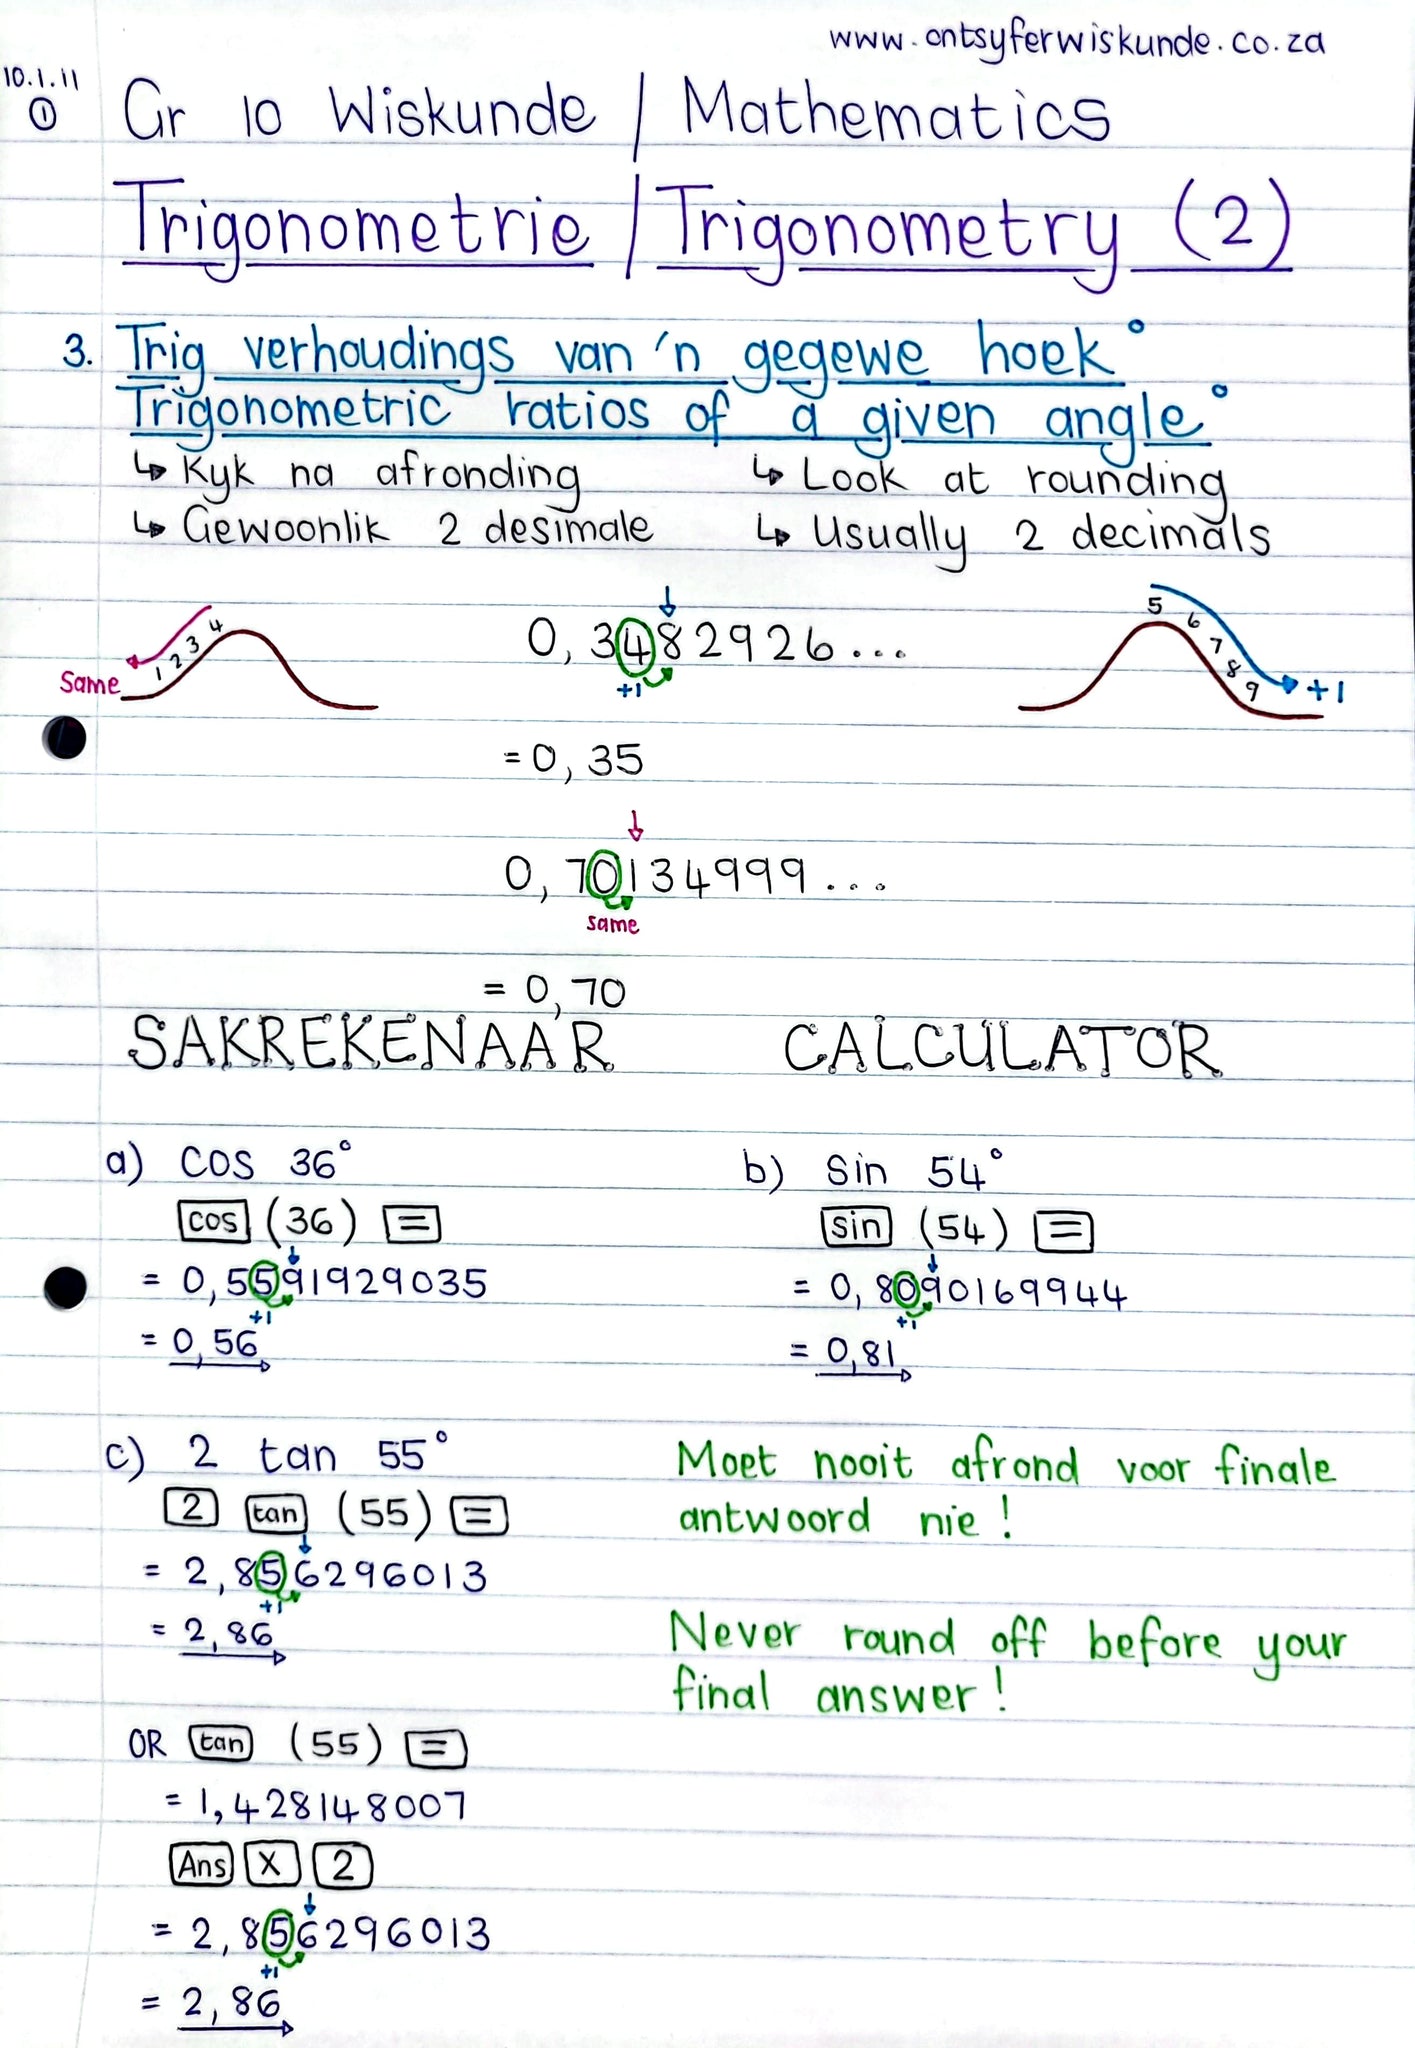 www.ontsyferwiskunde.co.za
10.1.11
① Gr 10 Wiskunde / Mathematics
Trigonometrie / Trigonometry (2)
3. Trig verhoudings van 'n gegewe hoek°
Trigonometric ratios of a given angle°
↳ Kyk na afronding ↳ Look at rounding
↳ Gewoonlik 2 desimale ↳ Usually 2 decimals
Same 1 2 3 4
↓
0,3482926...
+1
5 6 7 8 9 → +1
= 0,35
↓
0,70134999...
same
= 0,70
SAKREKENAAR CALCULATOR
a) cos 36°
cos (36) =
= 0,5591929035
+1
= 0,56
b) sin 54°
sin (54) =
= 0,8090169944
+1
= 0,81
c) 2 tan 55°
2 tan (55) =
= 2,856296013
+1
= 2,86
Moet nooit afrond voor finale
antwoord nie!
Never round off before your
final answer!
OR tan (55) =
= 1,428148007
Ans X 2
= 2,856296013
+1
= 2,86